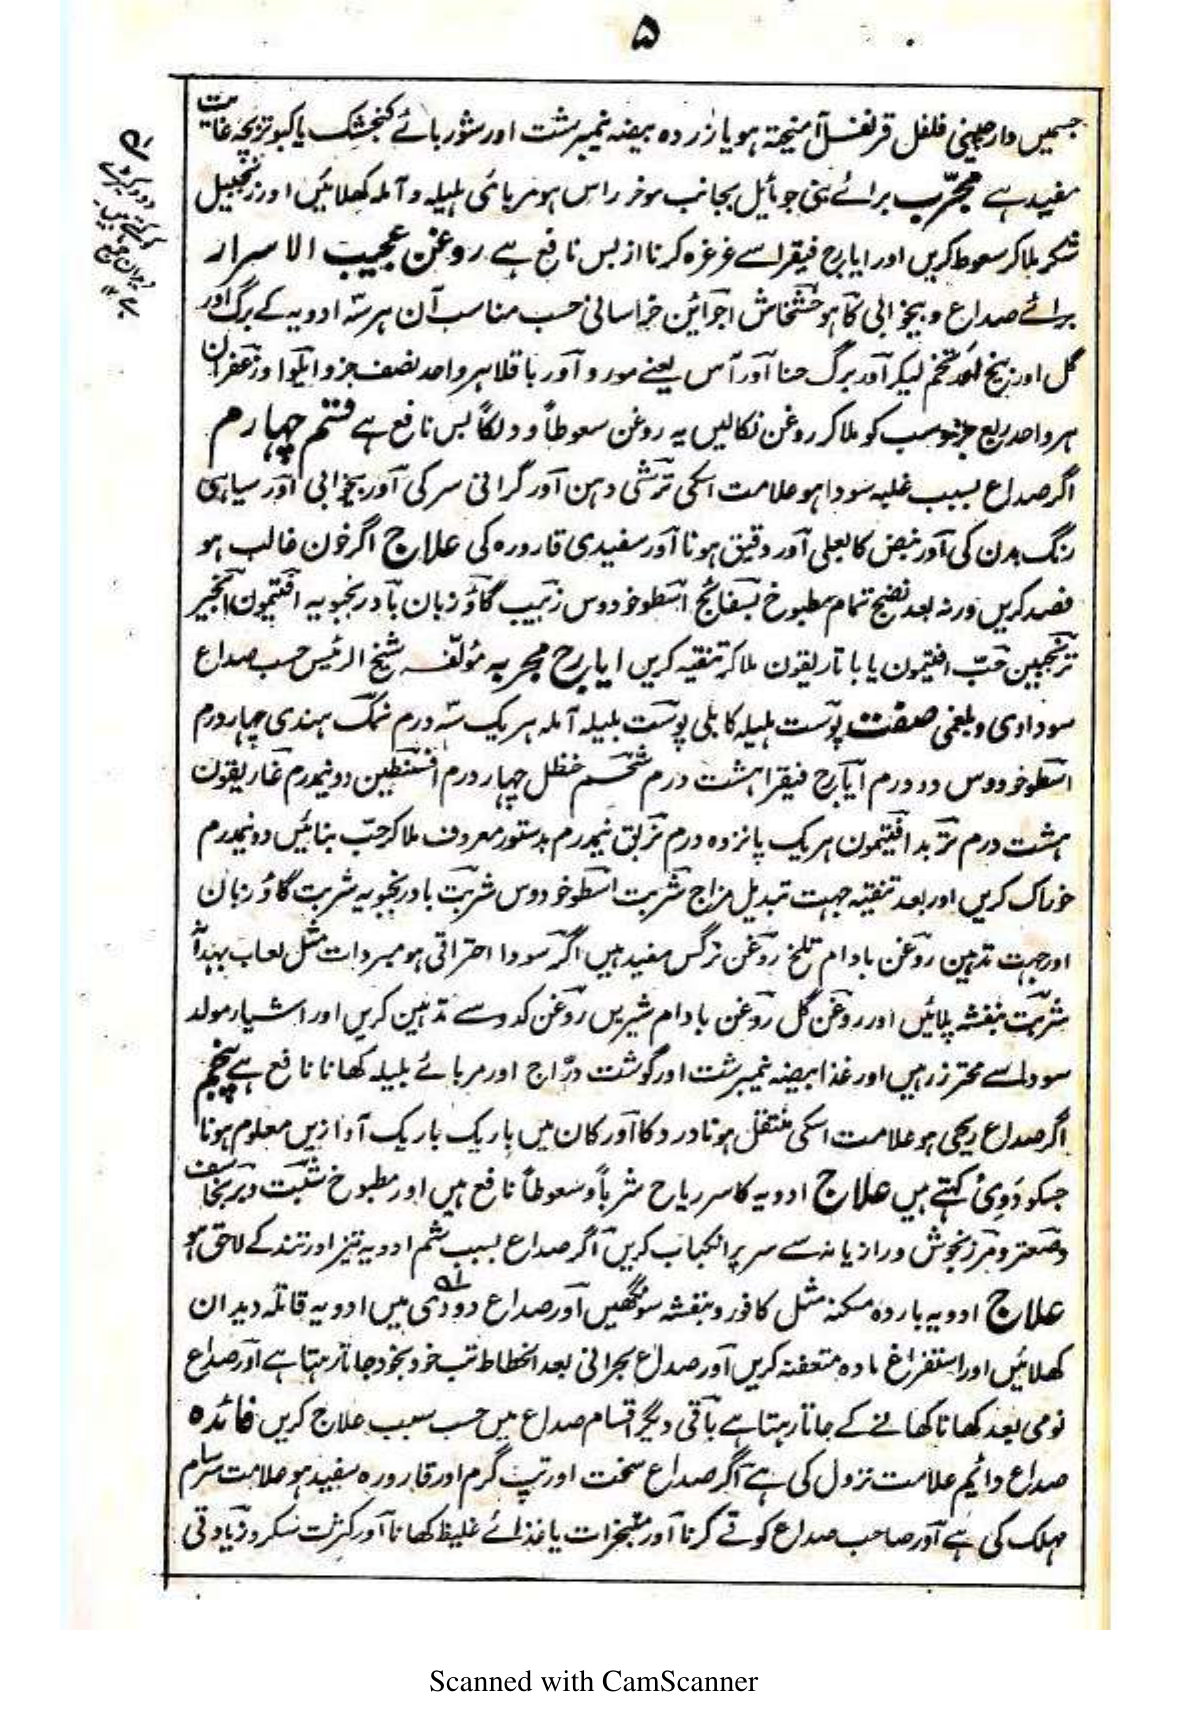 ۵
جسمیں دارچینی فلفل قرنفل آمیختہ ہو یا زردہ بیضہ نیمبرشت اور شوربائے کنجشک یا کبوتر بچہ غایت
مفید ہے مجرّب برائے بجانب موخر راس ہو مربائی ہلیلہ و آملہ کھلائیں اور زنجبیل
شکر ملا کر سعوط کریں اور ایارج فیقرا سے غرغرہ کرنا از بس نافع ہے روغن عجیب الاسرار
برائے صداع و بیخوابی کاہو خشخاش اجوائن خراسانی حسب مناسب آن ہر سہ ادویہ کے برگ اور
گل اور بیخ اور تخم لیکر اور برگ حنا اور آس یعنے مورد اور باقلا ہر واحد نصف جزو ایلوا اور زعفران
ہر واحد ربع جزو سب کو ملا کر روغن نکالیں یہ روغن سعوطاً و دلکاً بس نافع ہے قسم چہارم
اگر صداع بسبب غلبہ سودا ہو علامت اسکی ترشی دہن اور گرانی سر کی اور بیخوابی اور سیاہی
رنگ بدن کی اور نبض کا بطی اور دقیق ہونا اور سفیدی قارورہ کی علاج اگر خون غالب ہو
فصد کریں ورنہ بعد نضج تمام مطبوخ بسفائج اسطوخودوس زبیب گاؤزبان بادرنجبویہ افتیمون انجیر
ترنجبین حبّ افتیمون یا با تاریقون ملا کر تنقیہ کریں ایارج مجربہ مؤلفہ شیخ الرئیس حسب صداع
سوداوی و بلغمی صفت پوست ہلیلہ کابلی پوست بلیلہ آملہ ہر یک سہ درم نمک ہندی چہار درم
اسطوخودوس دو درم ایارج فیقرا ہشت درم شحم حنظل چہار درم افسنطین دو نیمدرم غاریقون
ہشت درم تربد افتیمون ہر یک پانزدہ درم خربق نیمدرم بدستور معروف ملا کر حبّ بنائیں دو نیمدرم
خوراک کریں اور بعد تنقیہ جہت تبدیل مزاج شربت اسطوخودوس شربت بادرنجبویہ شربت گاؤزبان
اور جہت تدہین روغن بادام تلخ روغن نرگس مفید ہیں اگر سودا احتراقی ہو مبردات مثل لعاب بہدانہ
شربت بنفشہ پلائیں اور روغن گل روغن بادام شیریں روغن کدو سے تدہین کریں اور اشیار مولد
سودا سے محترز رہیں اور غذا بیضہ نیمبرشت اور گوشت درّاج اور مربائے ہلیلہ کھانا نافع ہے پنجم
اگر صداع ریحی ہو علامت اسکی منتقل ہونا درد کا اور کان میں باریک باریک آوازیں معلوم ہونا
جسکو دَوِیّ کہتے ہیں علاج ادویہ کاسر ریاح شرباً و سعوطاً نافع ہیں اور مطبوخ شبت و برنجاسف
و صعتر و مرزنجوش و رازیانہ سے سر پر انکباب کریں اگر صداع بسبب شم ادویہ تیز اور تند کے لاحق ہو
علاج ادویہ باردہ مسکنہ مثل کافور و بنفشہ سونگھیں اور صداع دودی میں ادویہ قاتلہ دیدان
کھلائیں اور استفراغ مادہ متعفنہ کریں اور صداع بحرانی بعد انحطاط تب خود بخود جاتا رہتا ہے اور صداع
نومی بعد کھانا کھانے کے جاتا رہتا ہے باقی دیگر اقسام صداع میں حسب سبب علاج کریں فائدہ
صداع دائم علامت نزول کی ہے اگر صداع سخت اور تپ گرم اور قارورہ سفید ہو علامت سرسام
مہلک کی ہے اور صاحب صداع کو قے کرنا اور مبخرات یا غذائے غلیظ کھانا اور کثرت سکر و زیادتی
Scanned with CamScanner